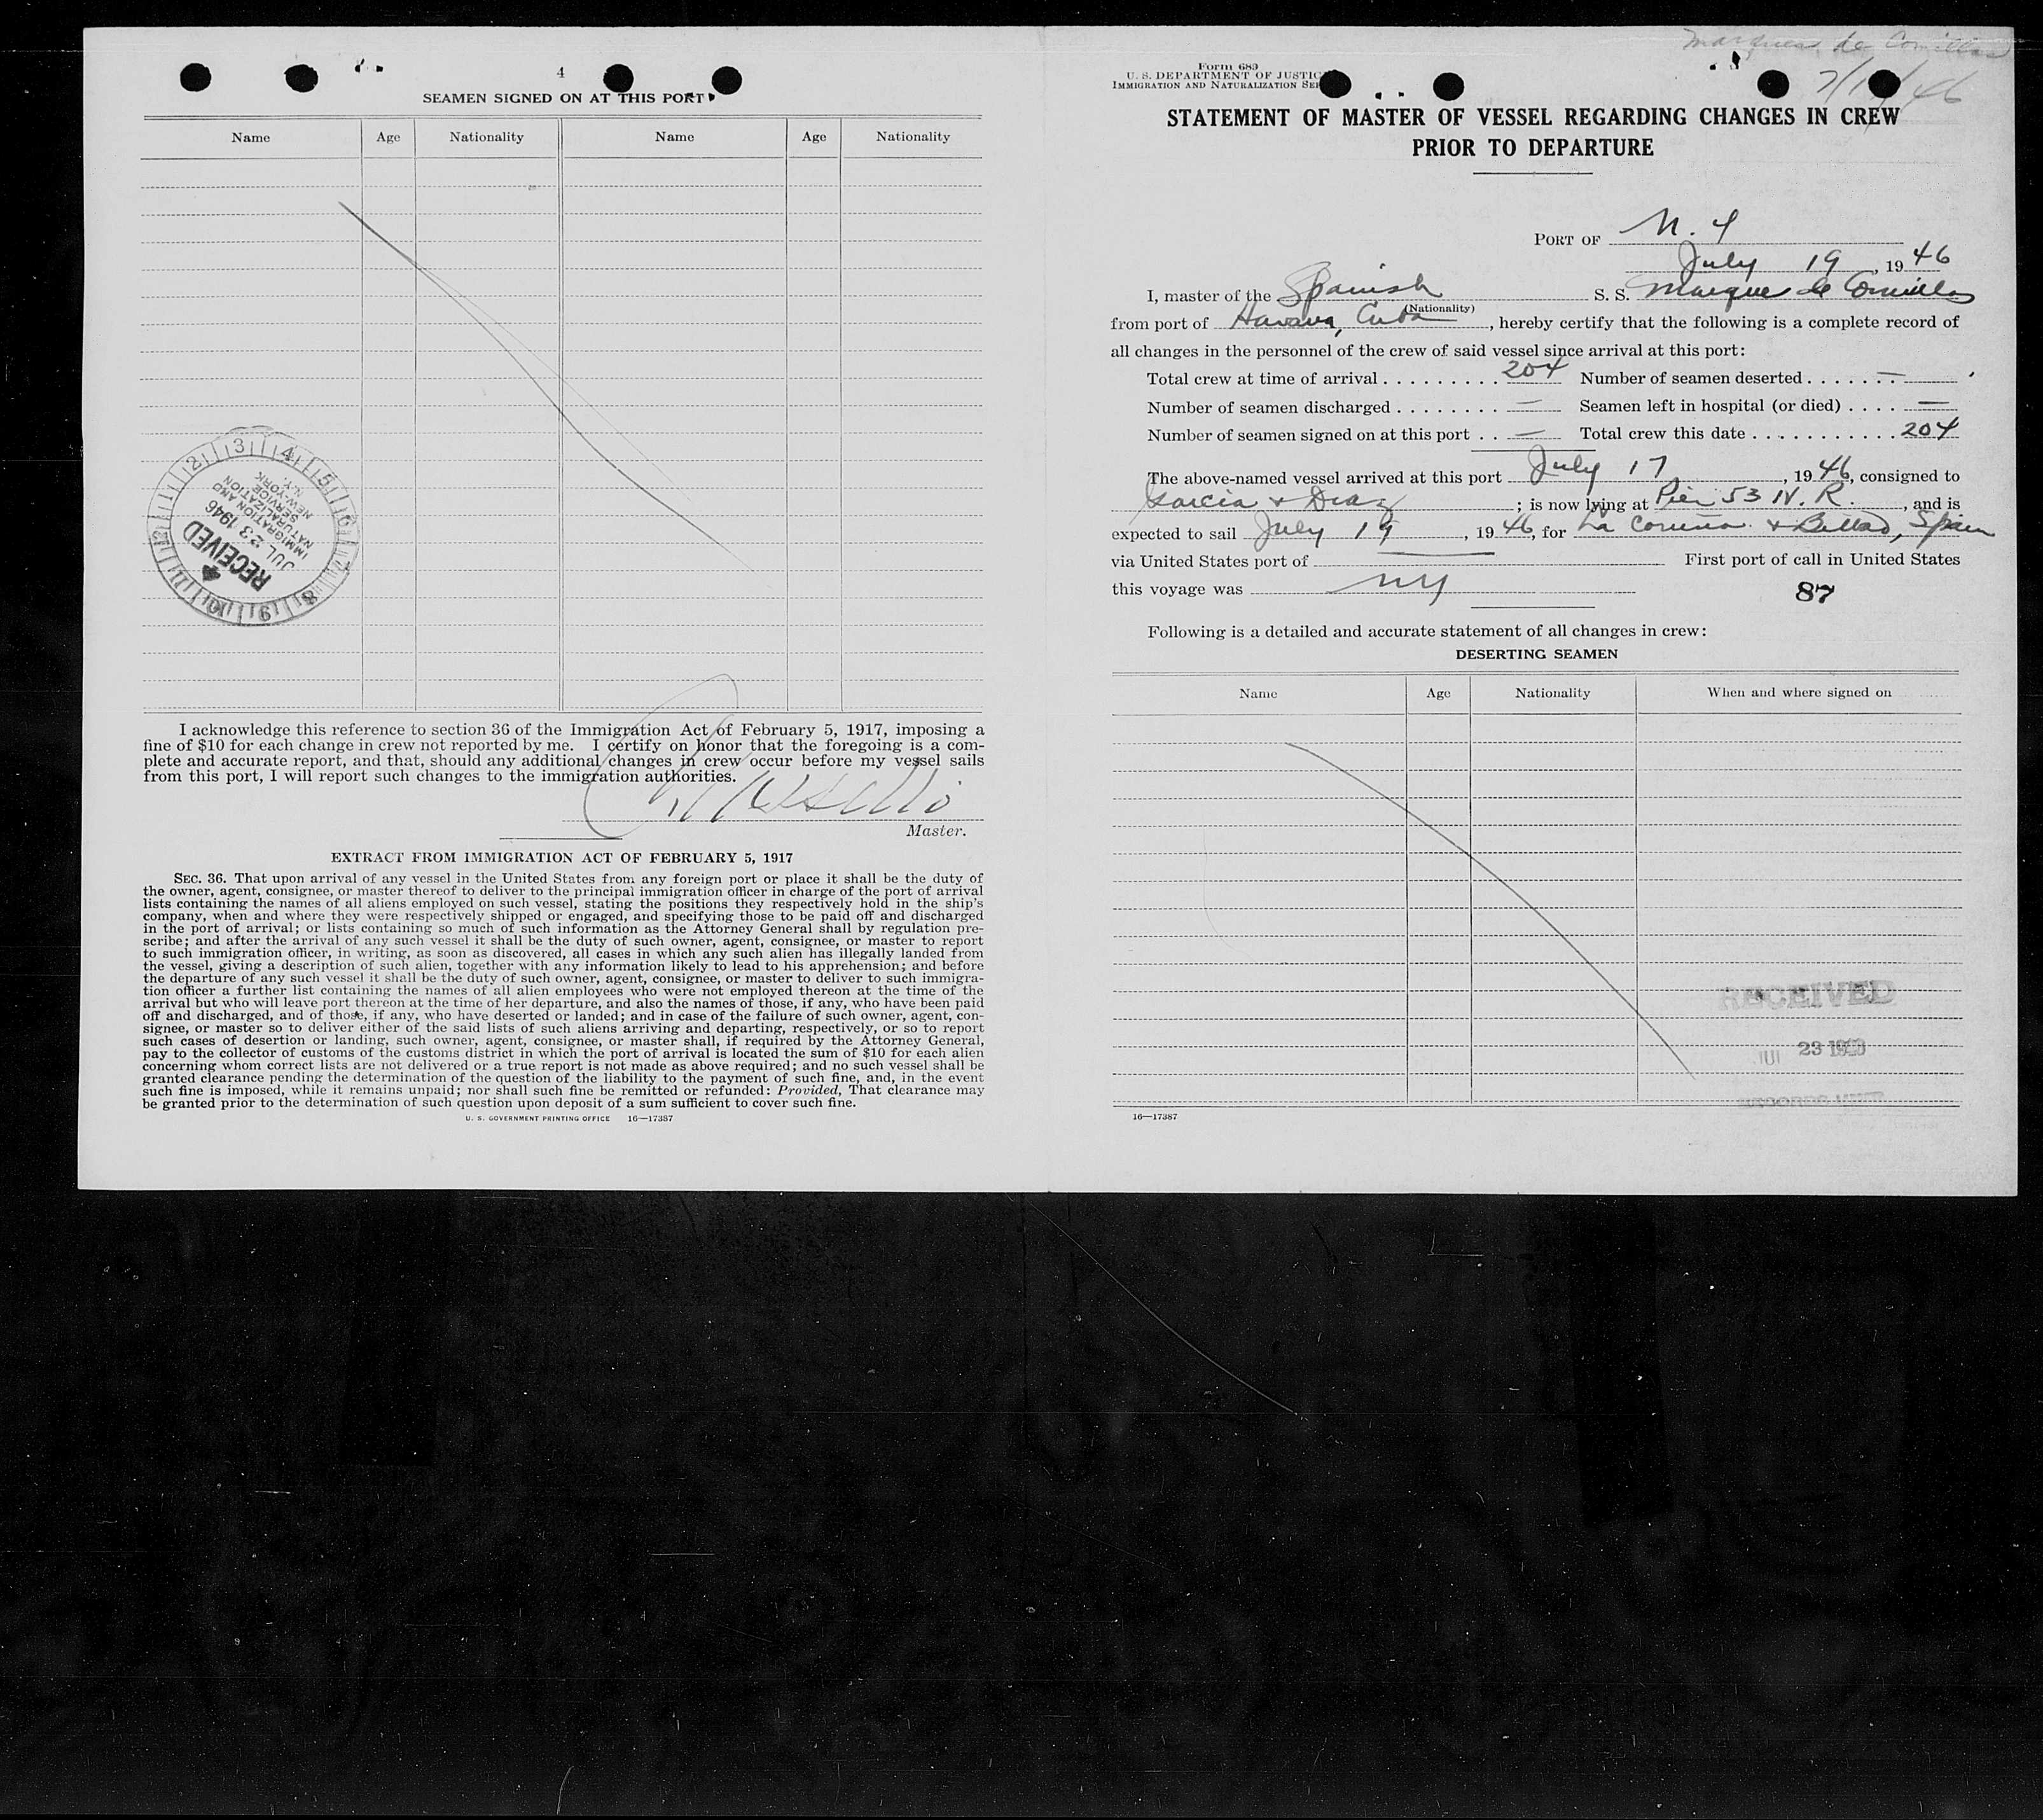 4
SEAMEN SIGNED ON AT THIS PORT
Name Age Nationality Name Age Nationality
3 4 5 6 7 8 9 10 11 12 1 2
IMMIGRATION AND
NATURALIZATION
SERVICE
NEW-YORK
N.Y.
JUL 23 1946
RECEIVED
I acknowledge this reference to section 36 of the Immigration Act of February 5, 1917, imposing a
fine of $10 for each change in crew not reported by me. I certify on honor that the foregoing is a com-
plete and accurate report, and that, should any additional changes in crew occur before my vessel sails
from this port, I will report such changes to the immigration authorities.
Master.
EXTRACT FROM IMMIGRATION ACT OF FEBRUARY 5, 1917
SEC. 36. That upon arrival of any vessel in the United States from any foreign port or place it shall be the duty of
the owner, agent, consignee, or master thereof to deliver to the principal immigration officer in charge of the port of arrival
lists containing the names of all aliens employed on such vessel, stating the positions they respectively hold in the ship's
company, when and where they were respectively shipped or engaged, and specifying those to be paid off and discharged
in the port of arrival; or lists containing so much of such information as the Attorney General shall by regulation pre-
scribe; and after the arrival of any such vessel it shall be the duty of such owner, agent, consignee, or master to report
to such immigration officer, in writing, as soon as discovered, all cases in which any such alien has illegally landed from
the vessel, giving a description of such alien, together with any information likely to lead to his apprehension; and before
the departure of any such vessel it shall be the duty of such owner, agent, consignee, or master to deliver to such immigra-
tion officer a further list containing the names of all alien employees who were not employed thereon at the time of the
arrival but who will leave port thereon at the time of her departure, and also the names of those, if any, who have been paid
off and discharged, and of those, if any, who have deserted or landed; and in case of the failure of such owner, agent, con-
signee, or master so to deliver either of the said lists of such aliens arriving and departing, respectively, or so to report
such cases of desertion or landing, such owner, agent, consignee, or master shall, if required by the Attorney General,
pay to the collector of customs of the customs district in which the port of arrival is located the sum of $10 for each alien
concerning whom correct lists are not delivered or a true report is not made as above required; and no such vessel shall be
granted clearance pending the determination of the question of the liability to the payment of such fine, and, in the event
such fine is imposed, while it remains unpaid; nor shall such fine be remitted or refunded: Provided, That clearance may
be granted prior to the determination of such question upon deposit of a sum sufficient to cover such fine.
U. S. GOVERNMENT PRINTING OFFICE 16—17387
Marques de Comillas
Form 689
U. S. DEPARTMENT OF JUSTICE
IMMIGRATION AND NATURALIZATION SER
STATEMENT OF MASTER OF VESSEL REGARDING CHANGES IN CREW
PRIOR TO DEPARTURE
PORT OF N. Y
July 19, 1946
I, master of the Spanish S. S. Marques de Comillas
(Nationality)
from port of Havana, Cuba, hereby certify that the following is a complete record of
all changes in the personnel of the crew of said vessel since arrival at this port:
Total crew at time of arrival 204 Number of seamen deserted —
Number of seamen discharged — Seamen left in hospital (or died) —
Number of seamen signed on at this port — Total crew this date 204
The above-named vessel arrived at this port July 17, 1946, consigned to
Garcia & Diaz; is now lying at Pier 53 N. R., and is
expected to sail July 19, 1946, for La Coruña & Bilbao, Spain
via United States port of First port of call in United States
this voyage was NY
87
Following is a detailed and accurate statement of all changes in crew:
DESERTING SEAMEN
Name Age Nationality When and where signed on
RECEIVED
JUL 23 19
RECORDS UNIT
16—17387